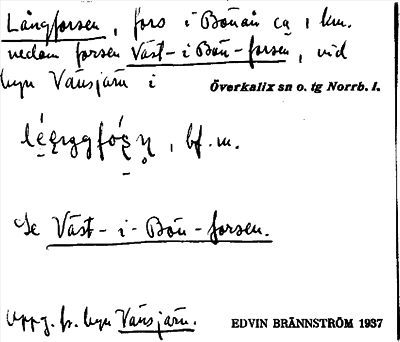 Långforsen, fors i Bönån ca 1 km.
nedom forsen Väst-i-Bön-forsen, vid
byn Vänsjärv i Överkalix sn o. tg Norrb. l.
bf. m.
Se Väst-i-Bön-forsen.
Uppg. fr. byn Vänsjärv. EDVIN BRÄNNSTRÖM 1937